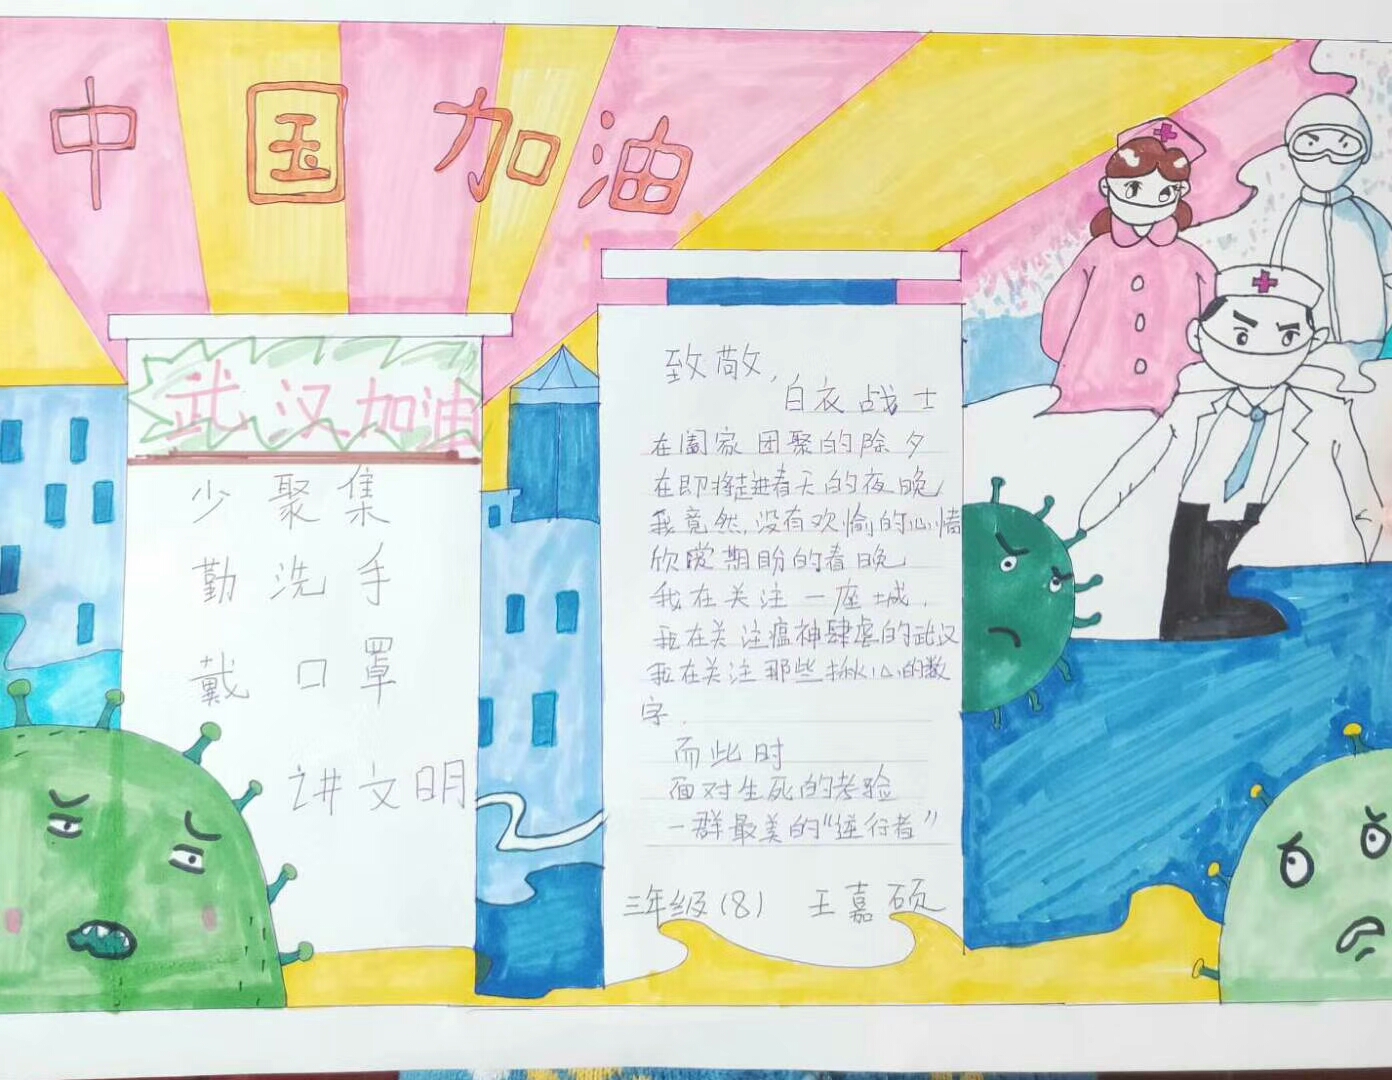 中国加油
武汉加油
少聚集
勤洗手
戴口罩
讲文明
致敬,
白衣战士
在阖家团聚的除夕
在即将走进春天的夜晚
我竟然没有欢愉的心情
欣赏期盼的春晚
我在关注一座城,
我在关注瘟神肆虐的武汉
我在关注那些揪心的数
字.
而此时
面对生死的考验
一群最美的“逆行者”
三年级(8) 王嘉硕